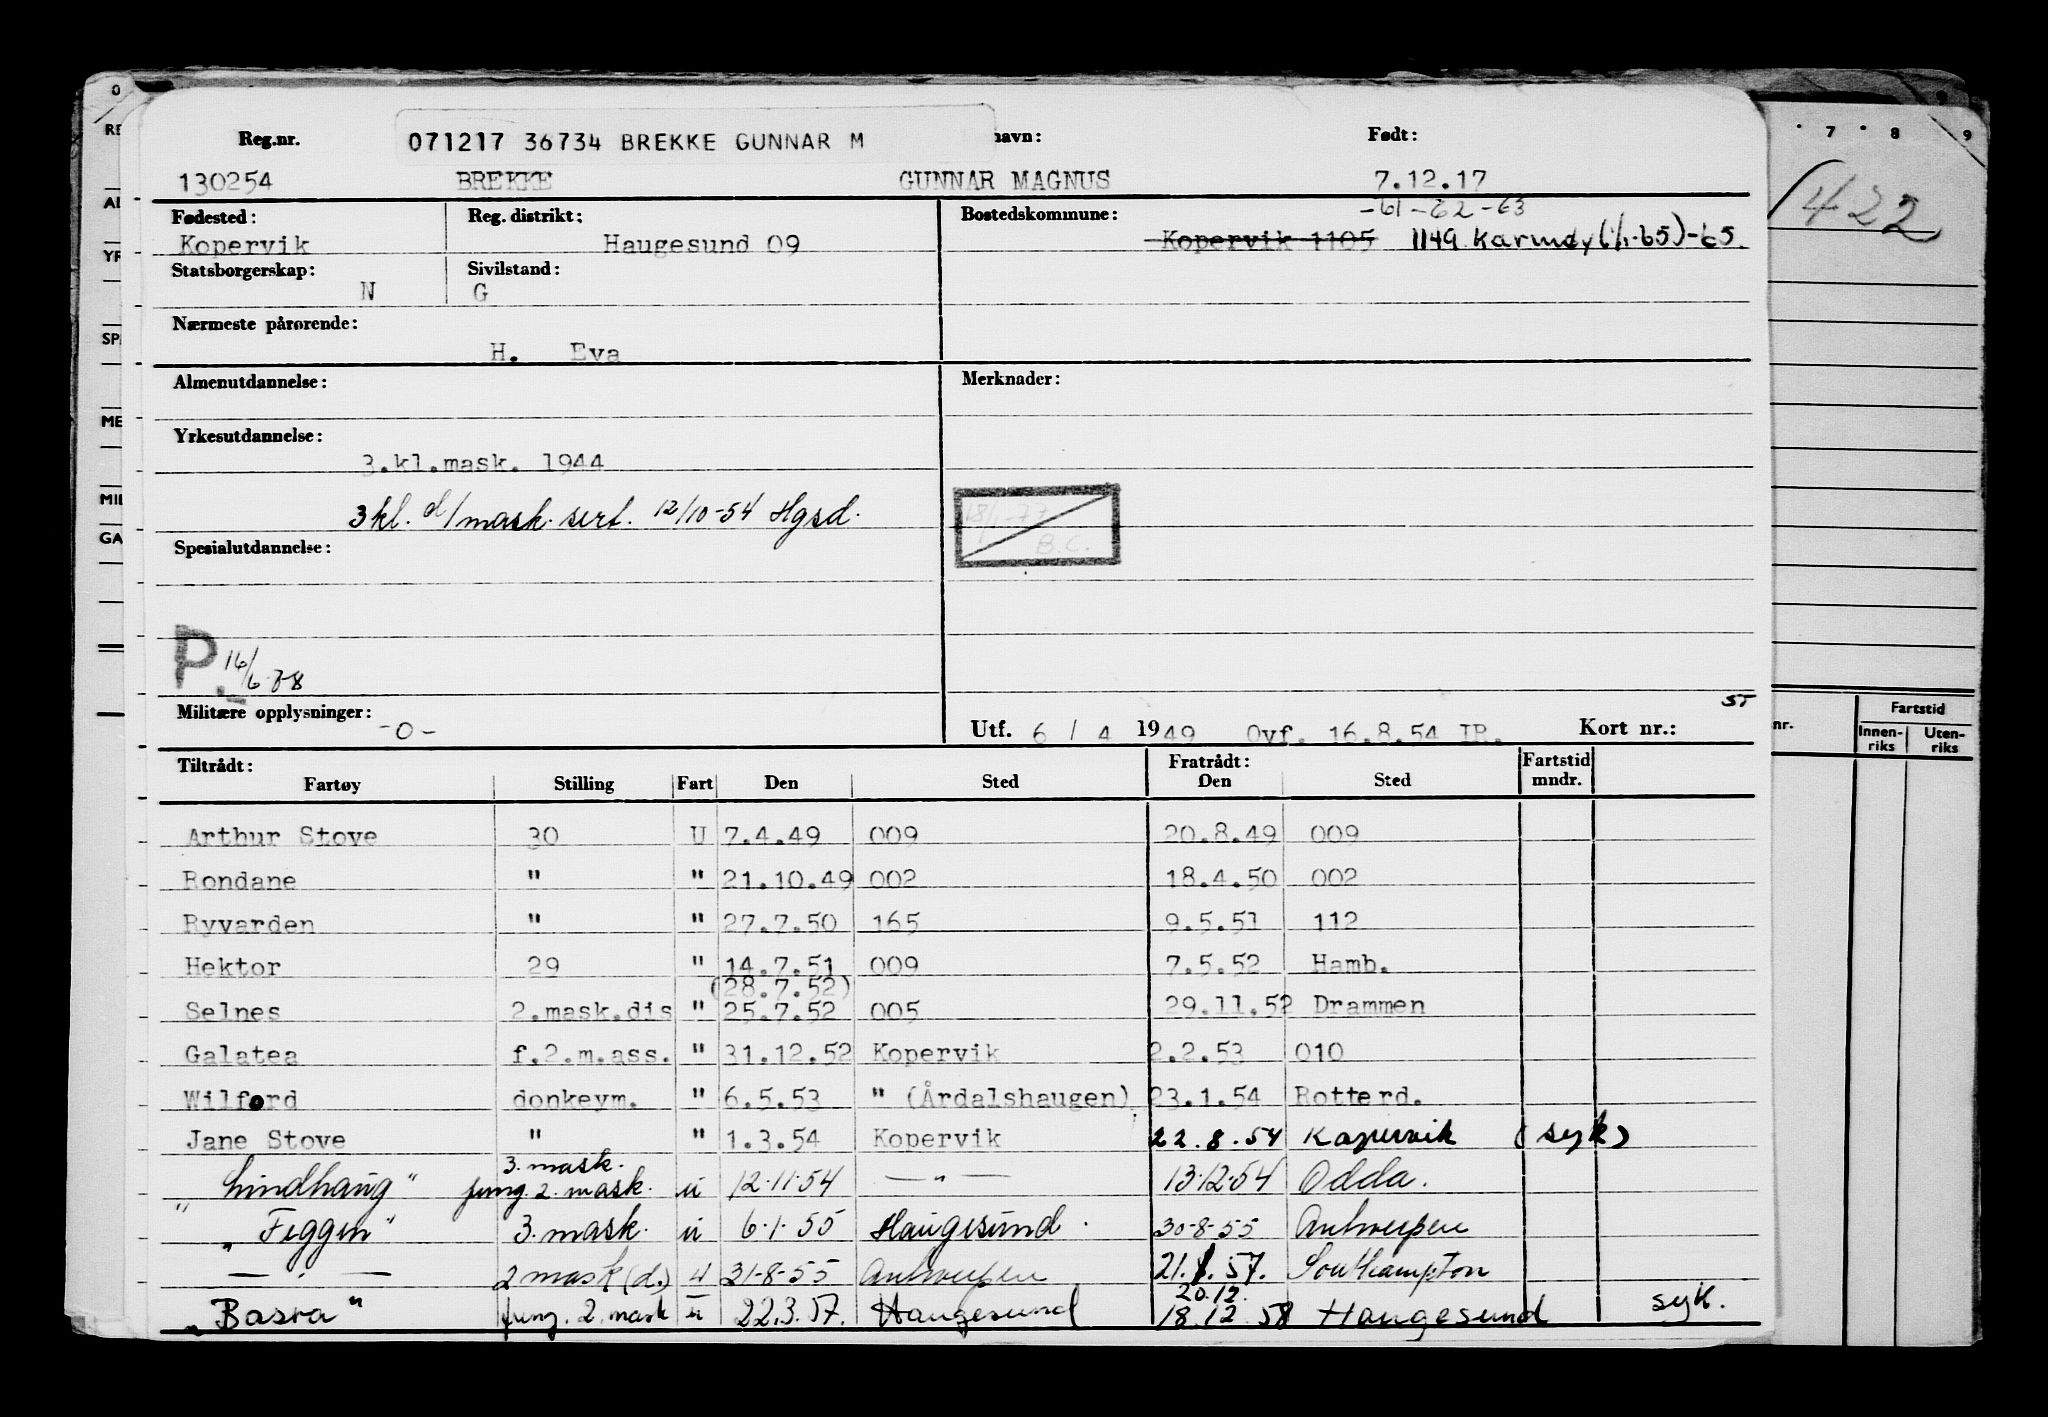 Reg.nr. 071217 36734 BREKKE GUNNAR M navn: Født:
130254 BREKKE GUNNAR MAGNUS 7.12.17
Fødested: Reg. distrikt: Bostedskommune: -61-62-63
Kopervik Haugesund 09 Kopervik 1105 1149 Karmøy (1/1-65)-65
Statsborgerskap: Sivilstand:
N G
Nærmeste pårørende:
H. Eva
Almenutdannelse: Merknader:
Yrkesutdannelse:
3.kl.mask. 1944
3 kl. d/mask. sert. 12/10-54 Hgsd.
18/1-77
B.C.
Spesialutdannelse:
P. 16/6
Militære opplysninger:
-0-
ST
Utf. 6 / 4 1949 Ovf. 16.8.54 IR. Kort nr.:
Tiltrådt: Fratrådt: Fartstid
Fartøy Stilling Fart Den Sted Den Sted mndr.
Arthur Stove 30 U 7.4.49 009 20.8.49 009
Rondane " " 21.10.49 002 18.4.50 002
Ryvarden " " 27.7.50 165 9.5.51 112
Hektor 29 " 14.7.51 009 7.5.52 Hamb.
(28.7.52)
Selnes 2.mask.dis " 25.7.52 005 29.11.52 Drammen
Galatea f.2.m.ass. " 31.12.52 Kopervik 2.2.53 010
Wilford donkeym. " 6.5.53 " (Årdalshaugen) 23.1.54 Rotterd.
Jane Stove " " 1.3.54 Kopervik 22.8.54 Kopervik (syk)
3. mask.
"Lindhaug" fung. 2. mask. u 12.11.54 — " — 13.12.54 Odda.
"Feggen" 3. mask. u 6.1.55 Haugesund. 30-8-55 Antwerpen
— " — 2 mask (d.) u 31-8-55 Antwerpen 21.1.57. Southampton
20.12.
"Basra" fung. 2. mask u 22.3.57. Haugesund 18.12.58 Haugesund syk.
7 8 9
1422
nr. Fartstid
Innen-
riks
Uten-
riks
0
RE
AL
YR
SP
ME
MIL
GA